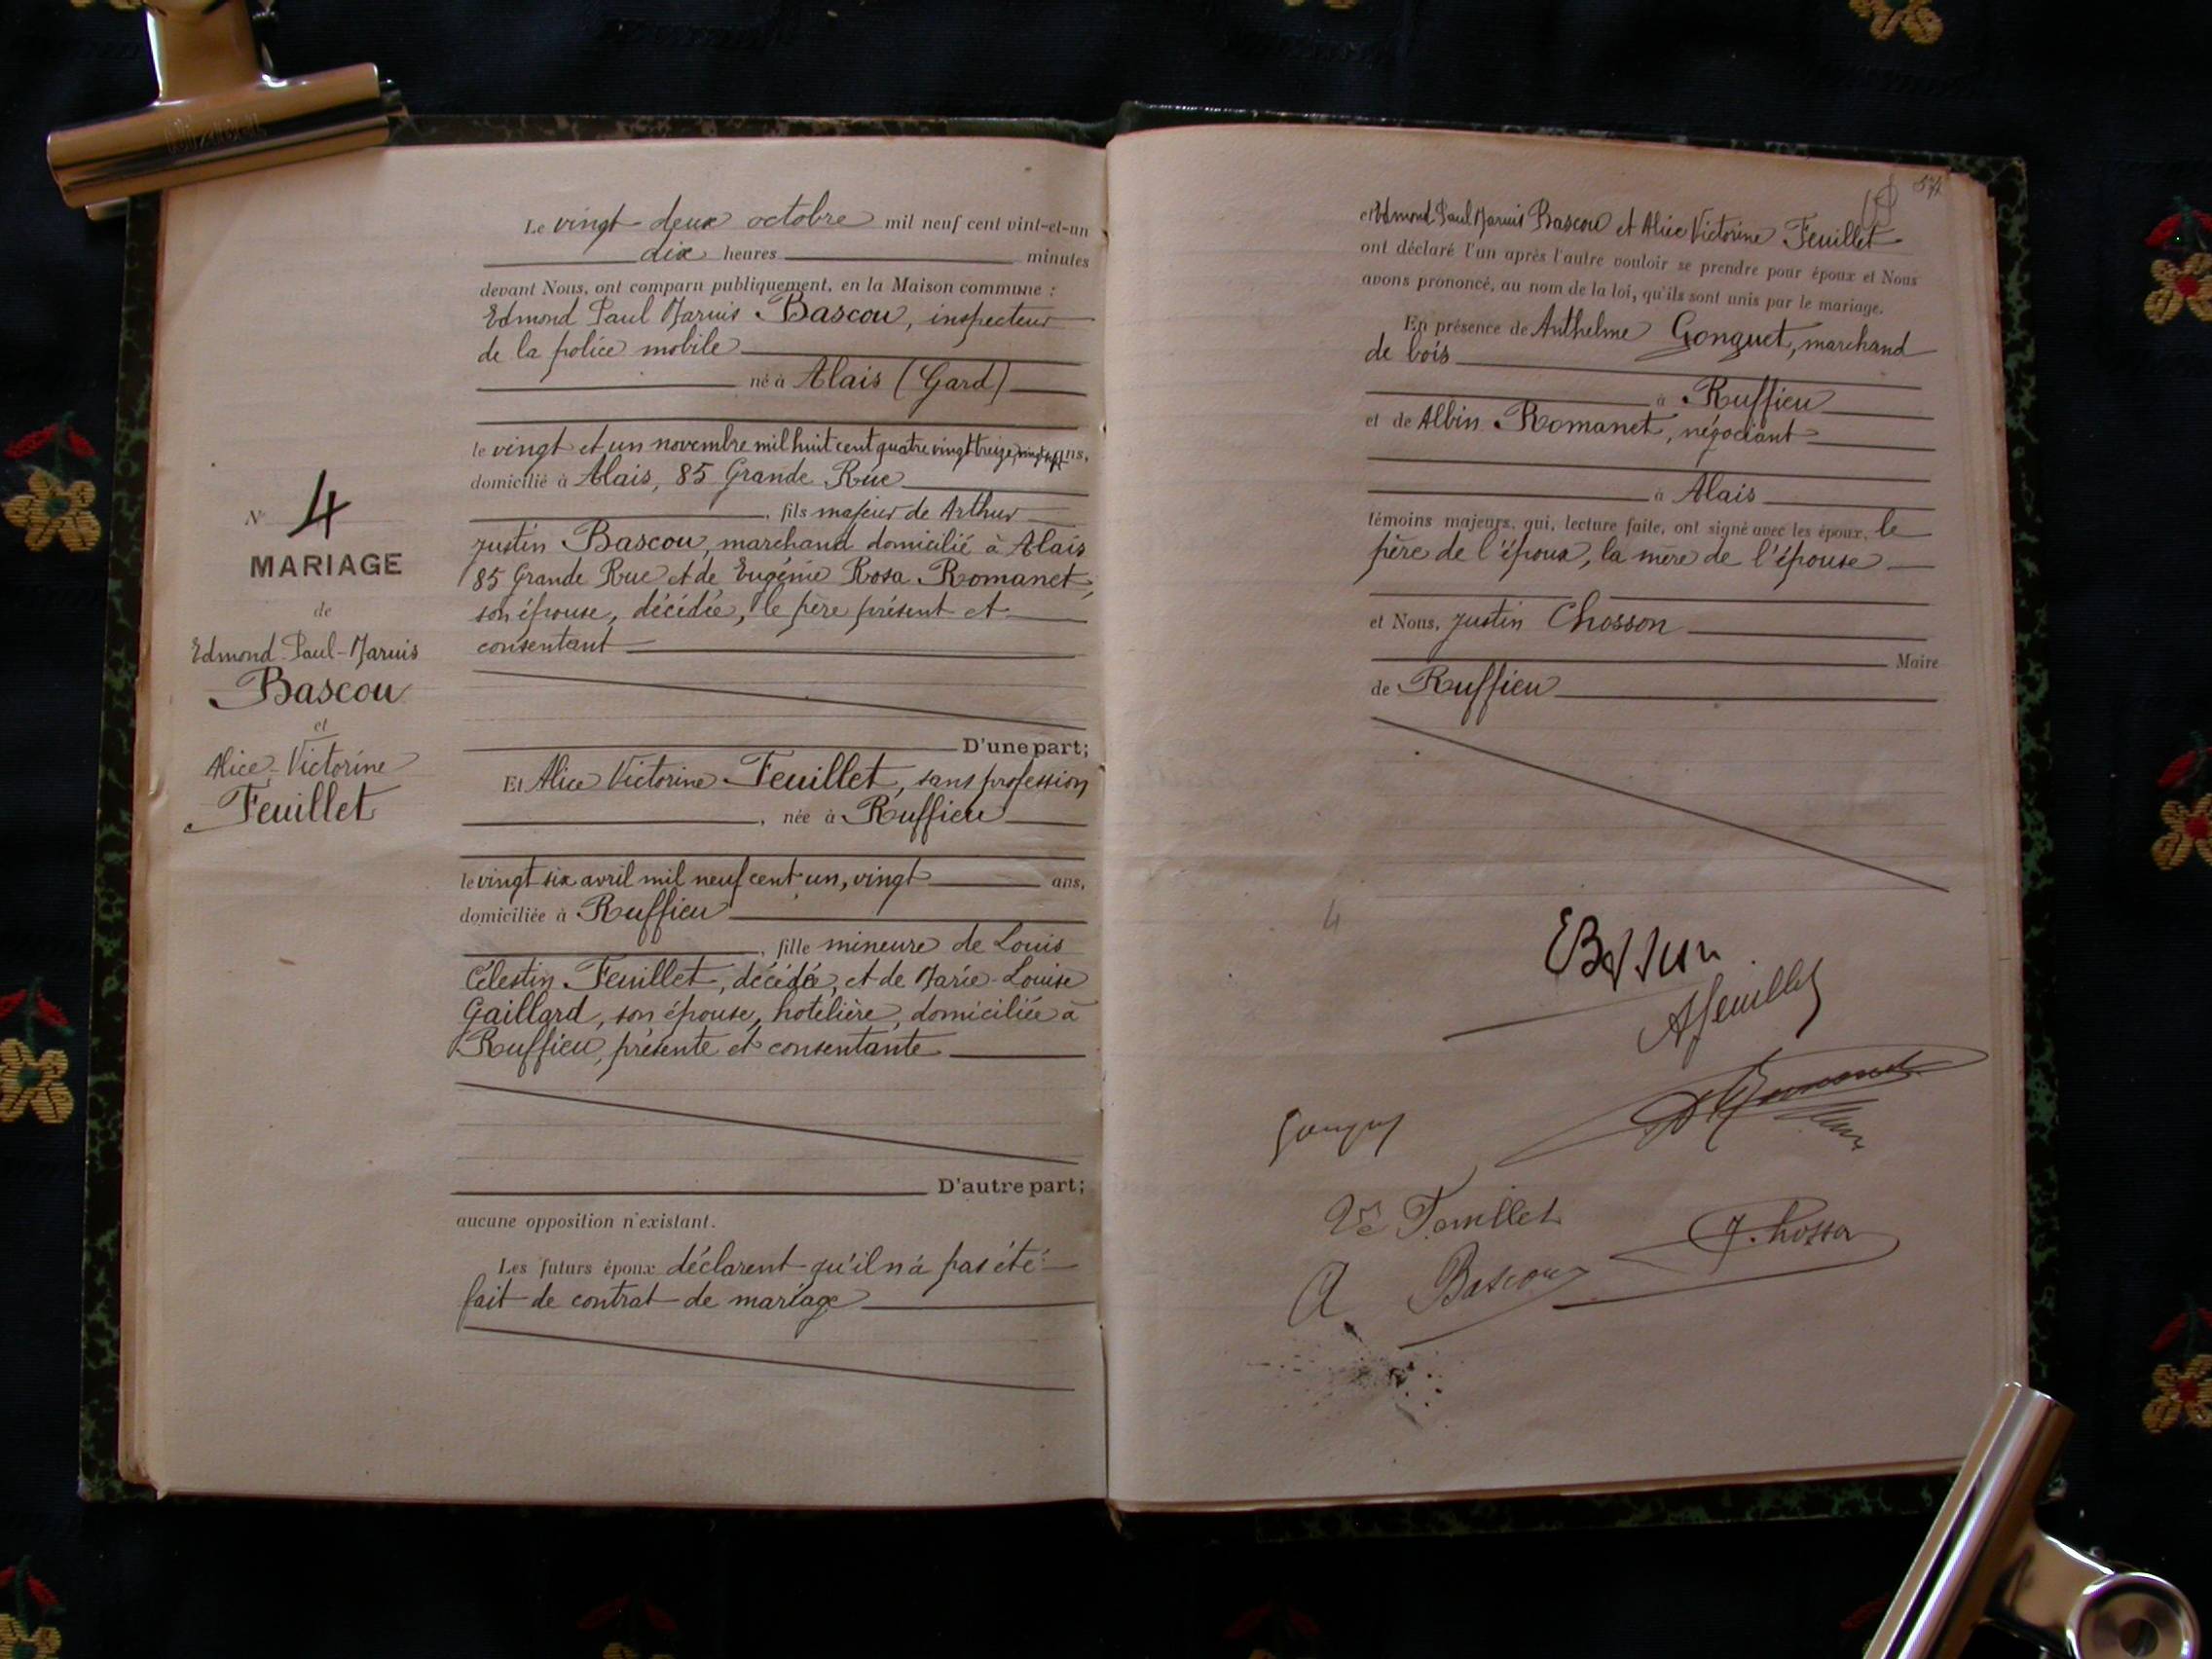 Le vingt-deux octobre mil neuf cent vint-et-un
dix heures minutes
devant Nous, ont comparu publiquement, en la Maison commune :
Edmond Paul Marius Bascou, inspecteur
de la police mobile
né à Alais (Gard)
le vingt et un novembre mil huit cent quatre vingt treize, vingt sept ans,
domicilié à Alais, 85 Grande Rue
, fils majeur de Arthur
Justin Bascou, marchand domicilié à Alais
85 Grande Rue et de Eugénie Rosa Romanet,
son épouse, décédée, le père présent et
consentant
N° 4
MARIAGE
de
Edmond-Paul-Marius
Bascou
et
Alice-Victorine
Feuillet
D'une part;
Et Alice Victorine Feuillet, sans profession
, née à Ruffieu
le vingt six avril mil neuf cent un, vingt ans,
domiciliée à Ruffieu
, fille mineure de Louis
Célestin Feuillet, décédé, et de Marie-Louise
Gaillard, son épouse, hotelière, domiciliée à
Ruffieu, présente et consentante
D'autre part;
aucune opposition n'existant.
Les futurs époux déclarent qu'il n'a pas été
fait de contrat de mariage
et Edmond Paul Marius Bascou et Alice Victorine Feuillet
ont déclaré l'un après l'autre vouloir se prendre pour époux et Nous
avons prononcé, au nom de la loi, qu'ils sont unis par le mariage.
En présence de Anthelme Gonguet, marchand
de bois
à Ruffieu
et de Albin Romanet, négociant
à Alais
témoins majeurs, qui, lecture faite, ont signé avec les époux, le
père de l'époux, la mère de l'épouse
et Nous, Justin Chosson
Maire
de Ruffieu
4
EBascou
AFeuillet
Ve Feuillet
A Bascou